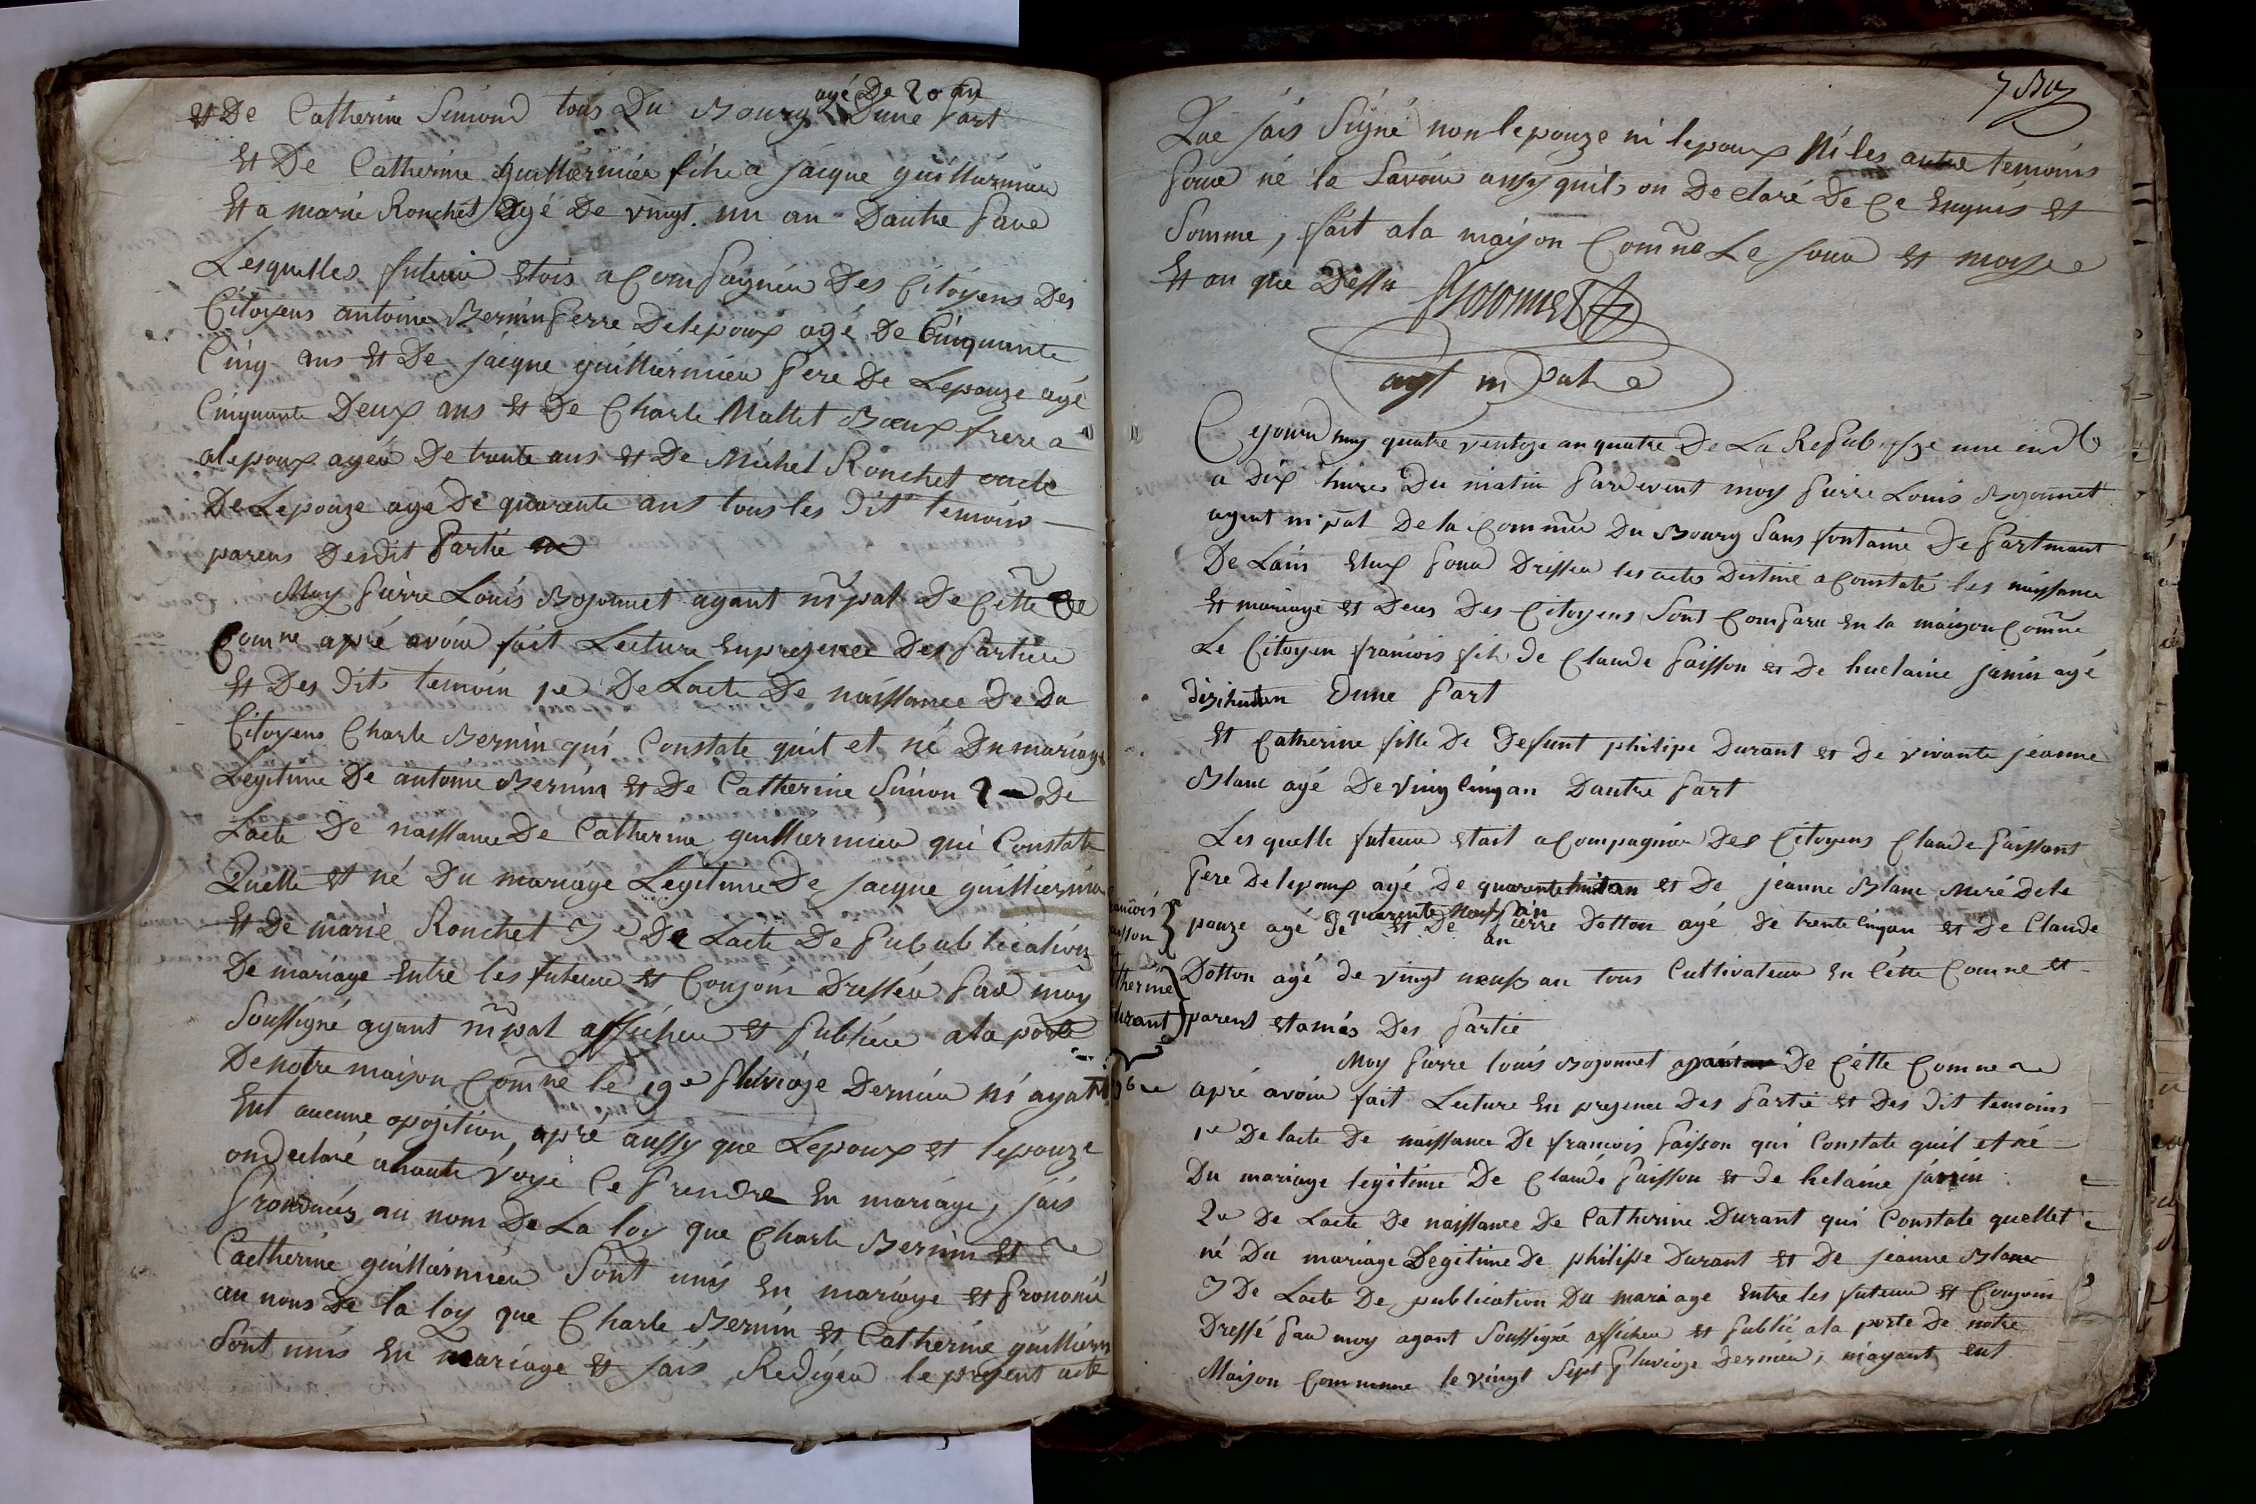 et De Catherine Simond tous Du Bourg agé De 20 an Dune part
Et De Catherine guilliermiere fille a jacque guilliermieu
Et a marie Ronchet agé De vingt un an Dautre part
Lesquelles futeur etois acompagnié Des Citoyens Des
Citoyens antoine Bernin perre Delepoux agé De Cinquante
Cinq ans et De jacque guilliermieu pere De Lepouze agé
Cinquante Deux ans et De Charle Mallet Beaux frere a
alepoux ageé De trente ans et De Michel Ronchet oncle
De Lepouze agé De quarente ans tous les dit temoin
parens Desdit partie
Moy pierre Louis Bozonnet agant m̃pal De Cette
Comne apré avoir fait Lecture En presence Des partiee
et Des dits temoin 1e De Lacte De naissance De Du
Citoyens Charle Bernin qui Constate quil et né Du mariage
Legitime De antoine Bernin et De Catherine Simon 2 De
Lacte De naissance De Catherine guilliermieu qui Constate
Quelle et né Du mariage Legitime De jacque guilliermieu
et De marie Ronchet 3e De Lacte De pubublication
De mariage Entre les futeur et Conjoin Dresséu par moy
Soussigné agant m̃pal afficheé et publiée ala porte
De notre maison Com̃ne le 19e pluvioze Dernieu ni ayant
Eut aucune opozition, apré aussy que Lepoux et lepouze
on declaré ahaute voye ce prendre En mariage, jais
prononcés au nom De La loy que Charle Bernin et
Catherine guilliermieu Sont unis En mariage et prononcé
au noms De la loy que Charle Bernin et Catherine guilliermi
Sont unis En mariage et jais Redigeu le present acte
Que jais Signé non lepouze ni lepoux Ni les autre temoins
pour né le Savoir ansy quils on Declaré De Ce Enquis et
Somme, fait ala maison Com̃ne Le jour et mois
Et an que Dessu Bozonnet
agt m pal
Cejourdhuy quatre ventoze an quatre De La Repub une ind
a Dix heures Du matin pardevent moy pierre Louis Bozonnet
agent m̃pal De la Commune Du Bourg Sans fontaine Departmant
De Lain Elus pour Dresseu les actes Destiné aConstaté les naissance
et mariage et Deces Des Citoyens Sont Comparu En la maison Com̃ne
Le Citoyen francois fils de Claude paisson et De huelaine janin agé
dizihuitan Dune part
Et Catherine fille De Defunt philipe Durant et De vivante jeanne
Blanc agé De Ving Cinqan Dautre part
Les quelle futeur etait acompagnié Des Citoyens Claude paissont
pere Delepoux agé De quarente huitan et De jeanne Blanc Meré Dele
pouze agé de quarente neuf an et De pierre Dotton agé De trente Cinqan et De Claude
an
Dotton agé de vingt neuf an tous Cultivateur En Cétte Comne et
parent et amés Des partie
francois
paisson
et
Catherine
Durant
96
Moy pierre louis Bozonnet De Cétte Comne
apré avoir fait Lecture En presence Des partie et Des dit temoins
1e De lacte De naissance De francois paisson qui Constate quil et né
Du mariage legitime De Claude paisson et de helaine janin
2e De Lacte De naissance De Catherine Durant qui Constate quellet
né Du mariage Legitime De philippe Durant et De jeanne Blanc
3 De Lacte De publication Du mariage Entre les futeur et Conjoin
Dressé par moy agant Soussigné afficheu et publié ala porte De notre
Maison Commune le vingt Sept pluvioze Dernieu, niayant eut